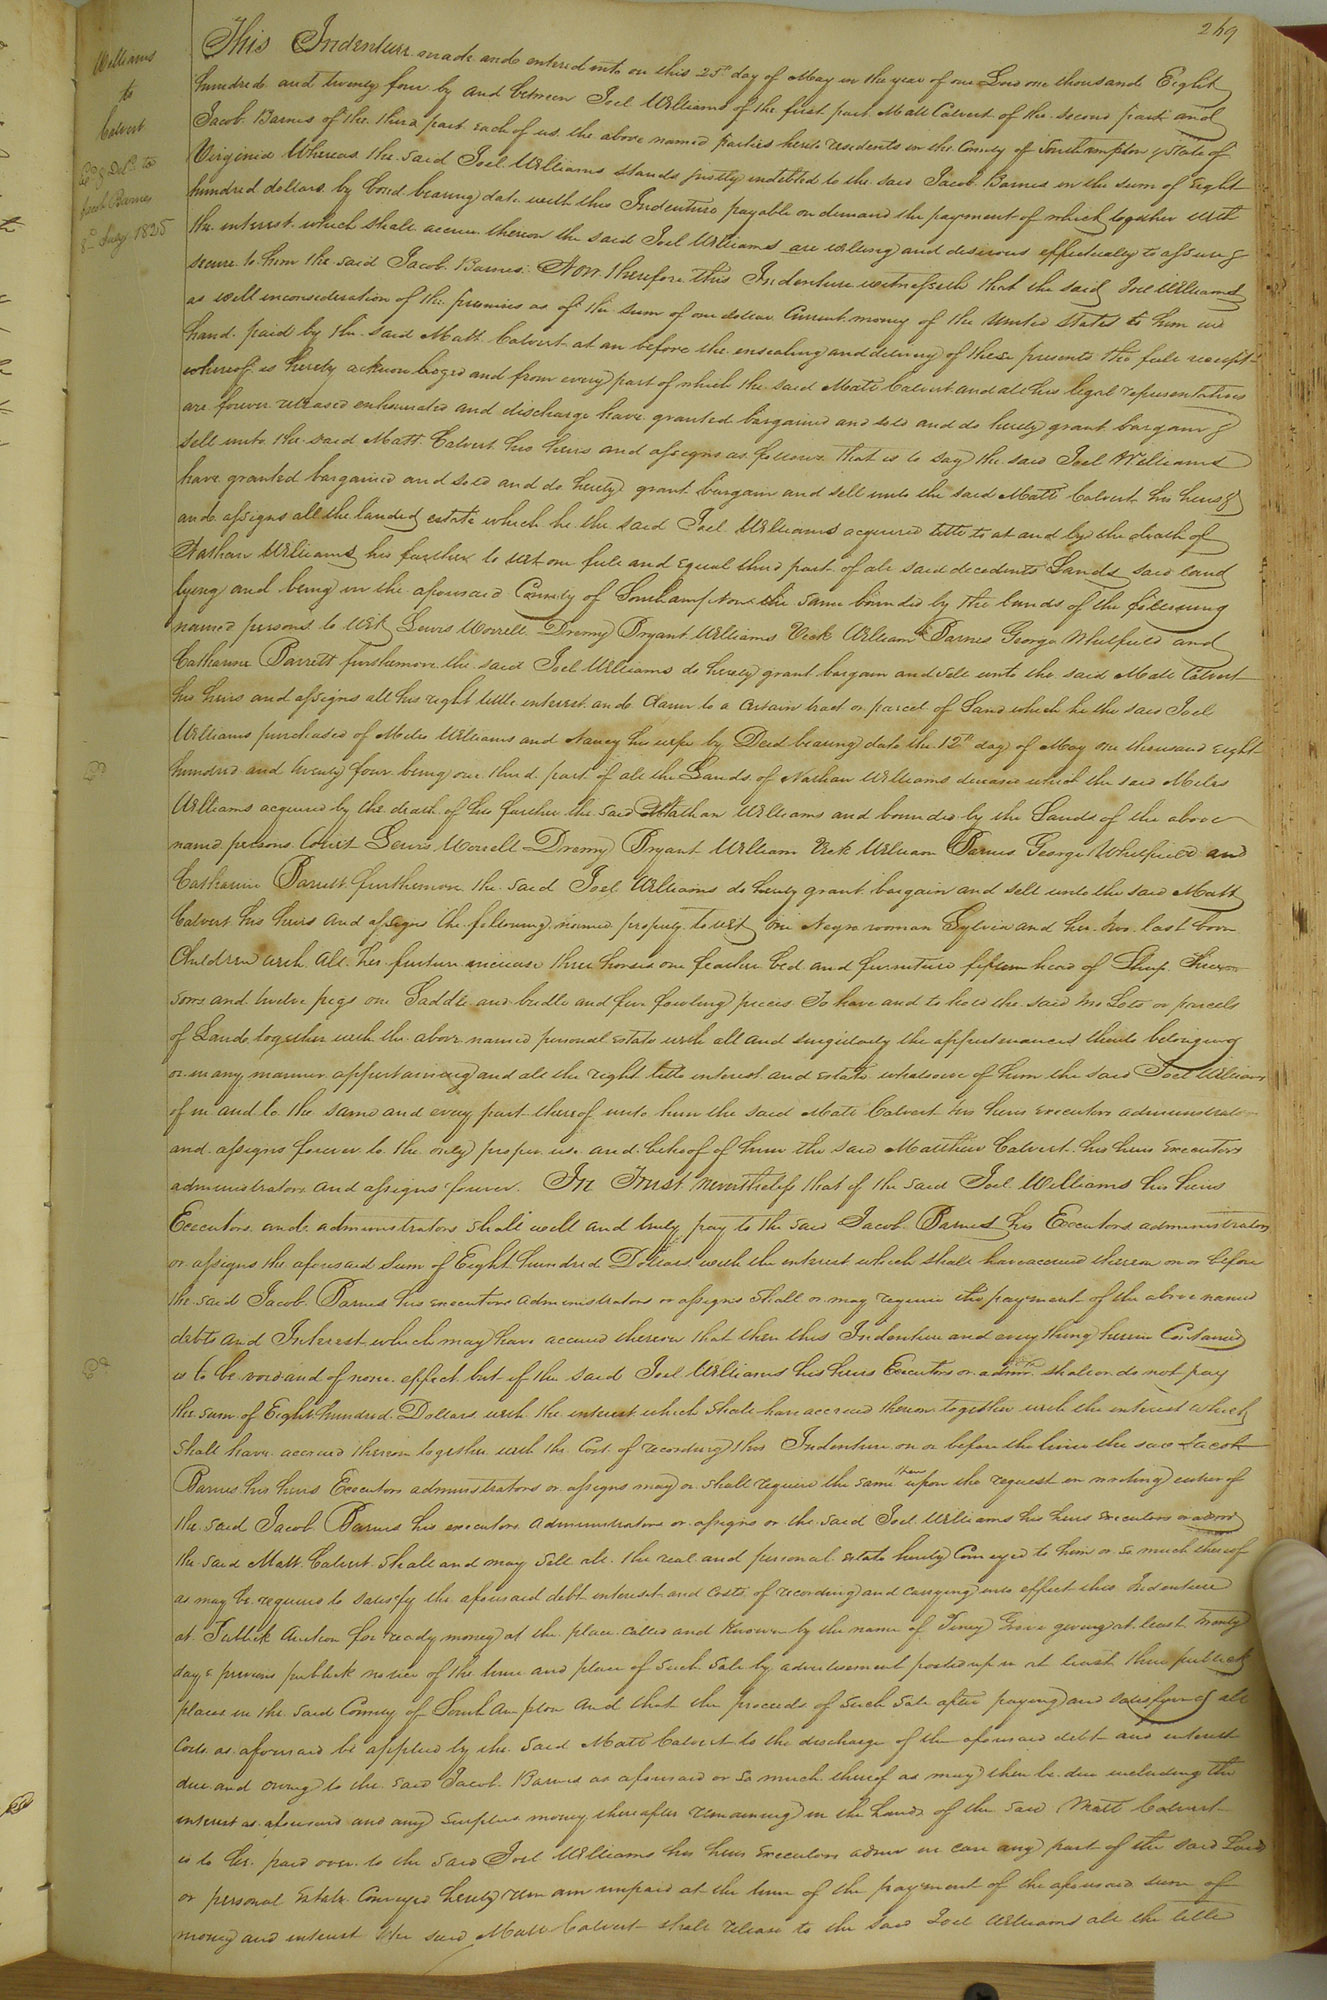 269
Williams
to
Calvert
Ex'd & Del'd to
Jacob Barnes
8th July 1825
This Indenture made and entered into on this 25th day of May in the year of our Lord one thousand Eight
hundred and twenty four by and between Joel Williams of the first part Matt Calvert of the second part and
Jacob Barnes of the third part each of us the above named parties hereto residents in the County of Southampton & State of
Virginia Whereas the said Joel Williams stands justly indebted to the said Jacob Barnes in the sum of Eight
hundred dollars by bond bearing date with this Indenture payable on demand the payment of which together with
the interest which shall accrue thereon the said Joel Williams are willing and desirous effectually to assure &
secure to him the said Jacob Barnes. Now therefore this Indenture witnesseth that the said Joel Williams
as well inconsideration of the premises as of the sum of one dollar Current money of the United States to him in
hand paid by the said Matt Calvert at an before the ensealing and delivery of these presents the full receipt
whereof is hereby acknowledged and from every part of which the said Matt Calvert and all his legal representatives
are forever released exhonerated and discharge have granted bargained and sold and do hereby grant bargain &
sell unto the said Matt Calvert his heirs and assigns as follows that is to say the said Joel Williams
have granted bargained and sold and do hereby grant bargain and sell unto the said Matt Calvert his heirs &
and assigns all the landed estate which he the said Joel Williams acquired title to at and by the death of
Nathan Williams his farther to wit one full and equal third part of all said decedents Lands said land
lying and being in the aforesaid County of Southampton the same bounded by the lands of the following
named persons to wit Lewis Worrell Drewry Bryant Williams Vick William Barnes George Whitfield and
Catharine Barrett furthermore the said Joel Williams do hereby grant bargain and sell unto the said Matt Calvert
his heirs and assigns all his right title interest and Claim to a certain tract or parcel of Land which he the said Joel
Williams purchased of Miles Williams and Nancy his wife by Deed bearing date the 12th day of May one thousand eight
hundred and twenty four being one third part of all the Lands of Nathan Williams deceased which the said Miles
Williams acquired by the death of his farther the said Nathan Williams and bounded by the Lands of the above
named persons towit Lewis Worrell Drewry Bryant William Vick William Barnes George Whitfield and
Catharine Barrett furthermore the said Joel Williams do hereby grant bargain and sell unto the said Matt
Calvert his heirs and assigns the following named property to wit One Negro woman Sylvia and her two last born
Children with all her future increase three horses one feather bed and furniture fifteen head of Sheep three
sows and twelve pigs one Saddle and bridle and five fowling pieces To have and to hold the said two Lots or parcels
of Land together with the above named personal estate with all and singularly the appurtenances thereto belonging
or in any manner appurtaining and all the right title interest and estate whatsoever of him the said Joel Williams
of in and to the same and every part thereof unto him the said Matt Calvert his heirs executors administrators
and assigns forever to the only proper use and behoof of him the said Matthew Calvert his heirs Executors
administrators and assigns forever. In Trust nevertheless that if the said Joel Williams his heirs
Executors and administrators shall well and truly pay to the said Jacob Barnes his Executors administrators
or assigns the aforesaid sum of Eight hundred Dollars with the interest which shall have accrued thereon on or before
the said Jacob Barnes his executors administrators or assigns shall or may require the payment of the above named
debts and Interest which may have accrued thereon that then this Indenture and every thing herein Contained
is to be void and of none effect but if the said Joel Williams his heirs Executors or admrs shall or do not pay
the sum of Eight hundred Dollars with the interest which shall have accrued thereon together with the interest which
shall have accrued thereon together with the Cost of recording this Indenture on or before the time the said Jacob
Barnes his heirs Executors administrators or assigns may or shall require the same then upon the request in writing either of
the said Jacob Barnes his executors administrators or assigns or the said Joel Williams his heirs executors or admrs
the said Matt Calvert shall and may sell all the real and personal estate hereby Conveyed to him or so much thereof
as may be required to satisfy the aforesaid debt interest and costs of recording and carrying into effect this Indenture
at Publick Auction for ready money at the place called and Known by the name of Piney Grove giving at least twenty
days previous publick notice of the time and place of such Sale by advertisement posted up in at least three publick
places in the said County of Southampton and that the proceeds of such sale after paying and satisfying all
Costs as aforesaid be applied by the said Matt Calvert to the discharge of the aforesaid debt and interest
due and owing to the said Jacob Barnes as aforesaid or so much thereof as may then be due including the
interest as aforesaid and any surplus money thereafter remaining in the hands of the said Matt Calvert
is to be paid over to the said Joel Williams his heirs Executors admrs in case any part of the said Land
or personal estate Conveyed hereby remain unpaid at the time of the payment of the aforesaid sum of
money and interest the said Matt Calvert shall release to the said Joel Williams all the title